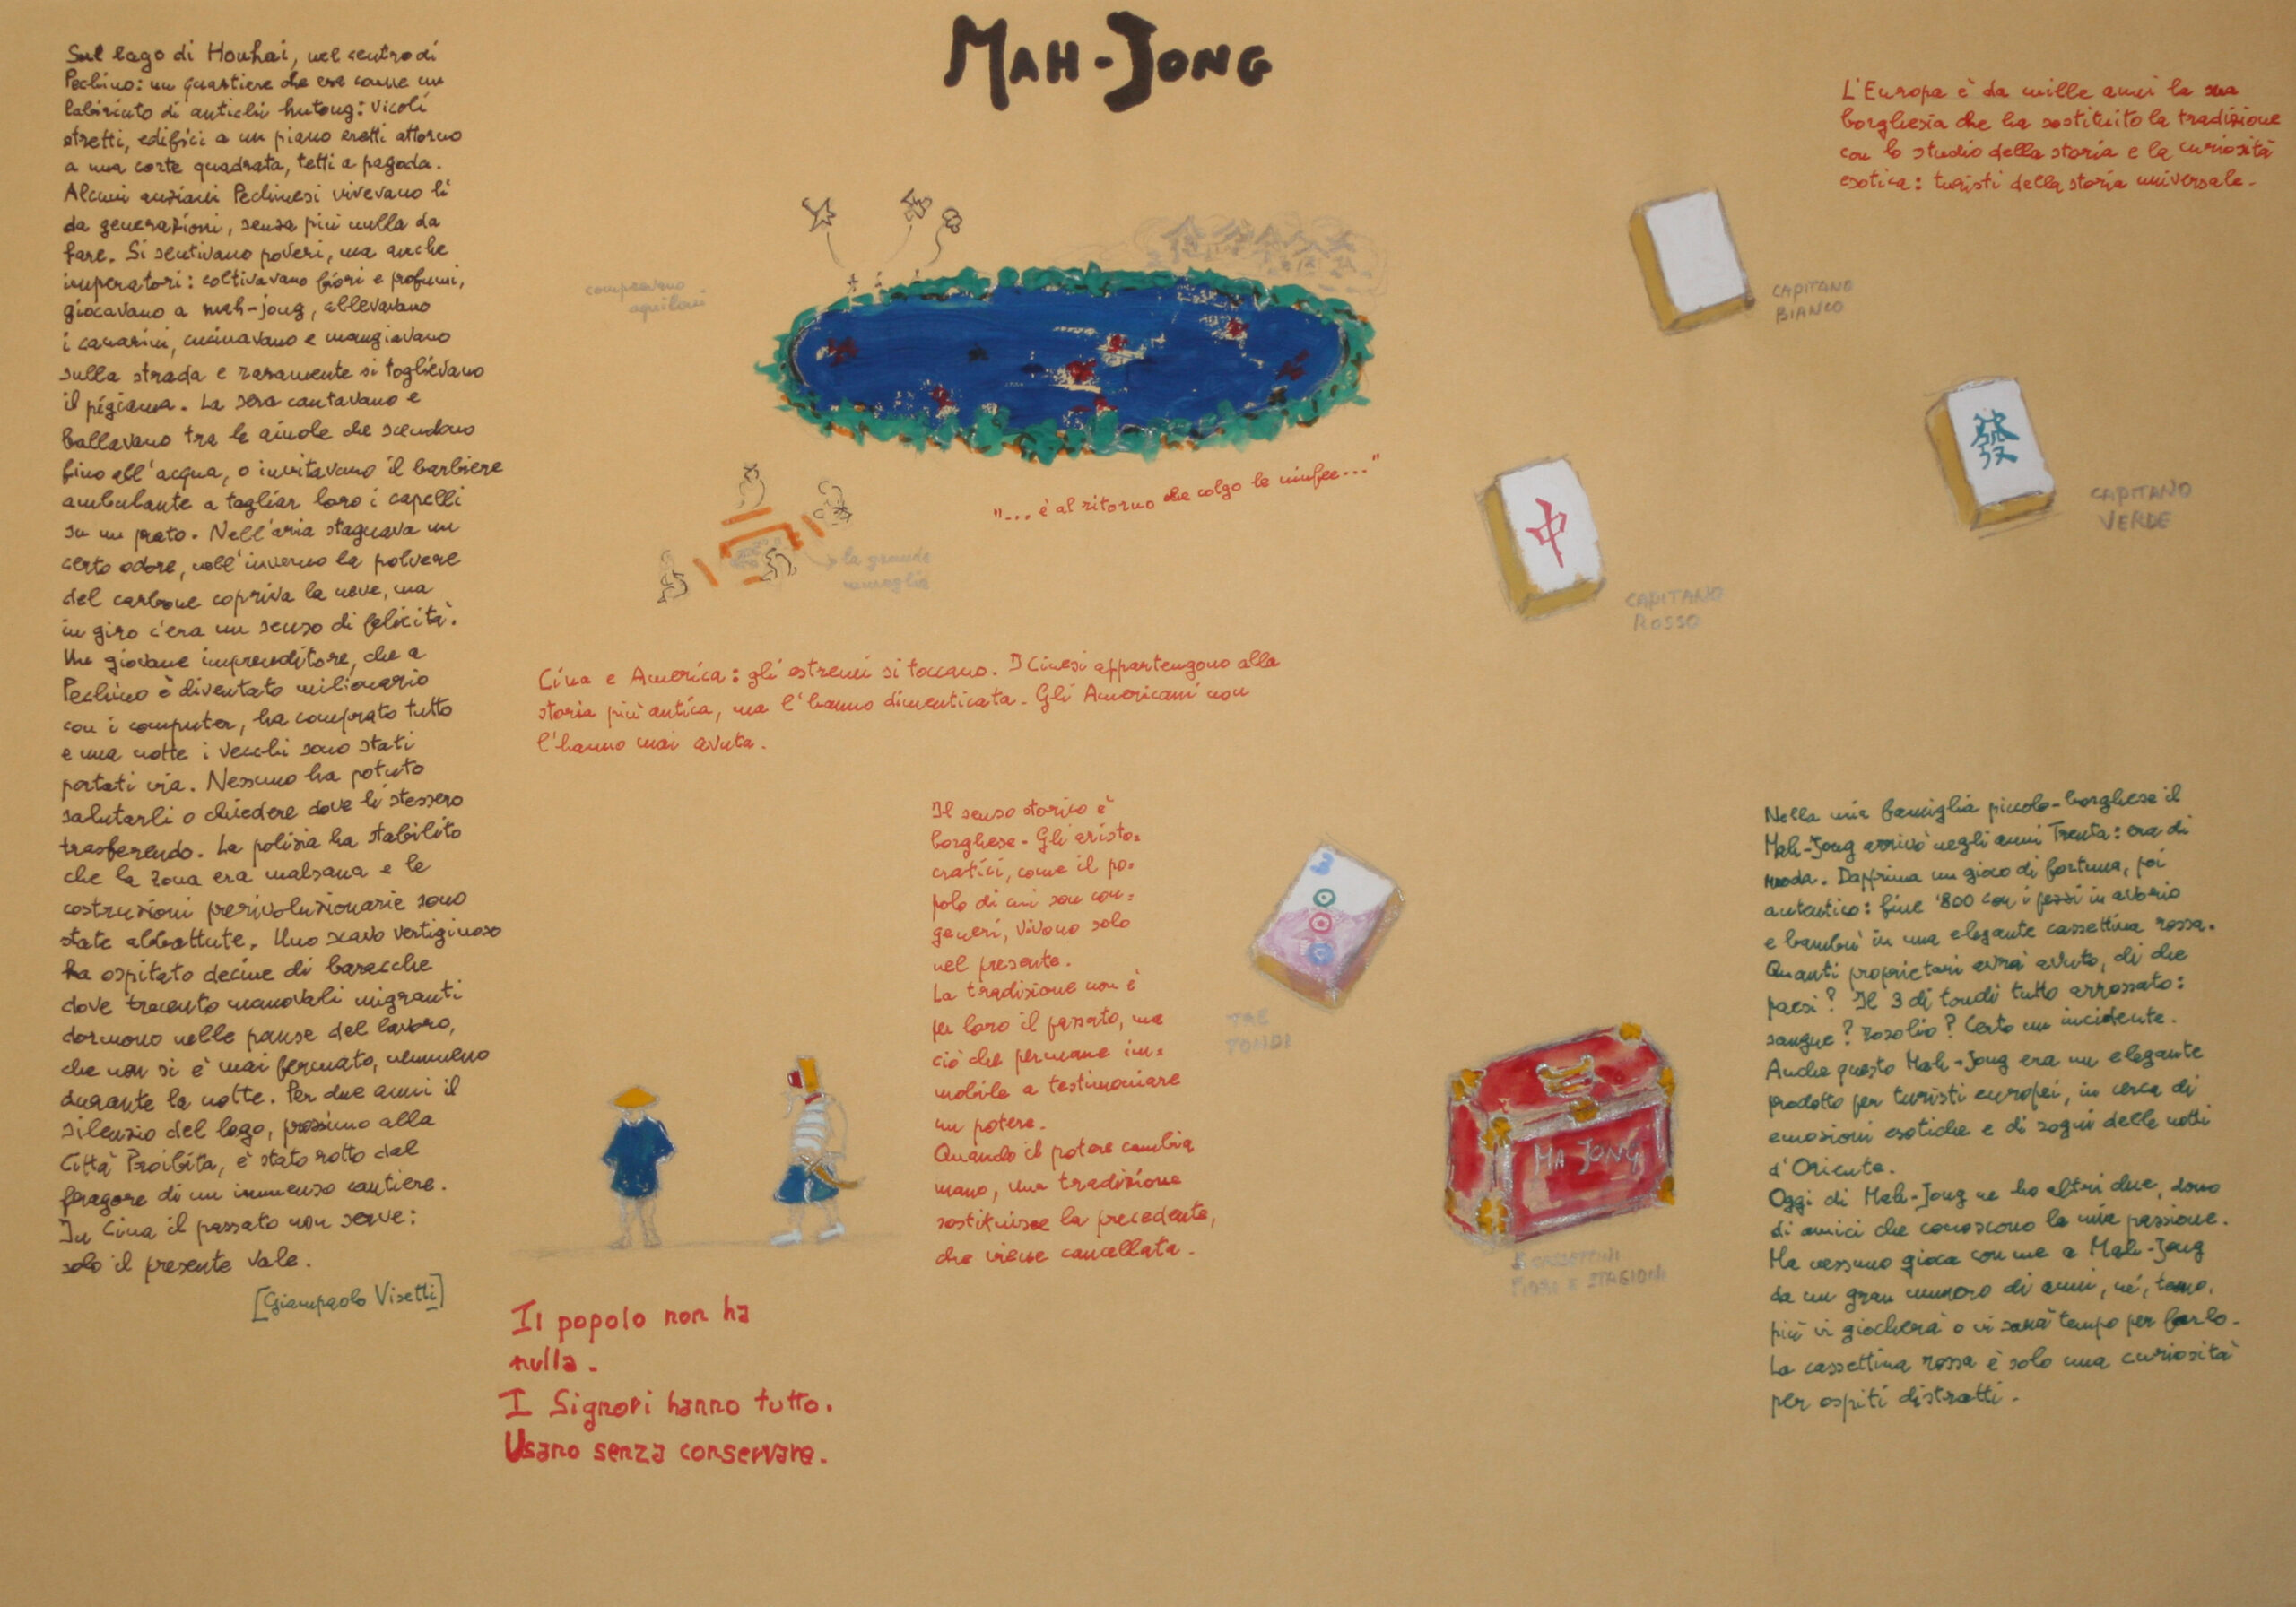 MAH-JONG
Sul lago di Houhai, nel centro di
Pechino: un quartiere che era come un
labirinto di antichi hutong: vicoli
stretti, edifici a un piano eretti attorno
a una corte quadrata, tetti a pagoda.
Alcuni anziani Pechinesi vivevano lì
da generazioni, senza più nulla da
fare. Si sentivano poveri, ma anche
imperatori: coltivavano fiori e profumi,
giocavano a mah-jong, allevavano
i canarini, cucinavano e mangiavano
sulla strada e raramente si toglievano
il pigiama. La sera cantavano e
ballavano tra le aiuole che scendono
fino all'acqua, o invitavano il barbiere
ambulante a tagliar loro i capelli
su un prato. Nell'aria stagnava un
certo odore, nell'inverno la polvere
del carbone copriva la neve, ma
in giro c'era un senso di felicità.
Un giovane imprenditore, che a
Pechino è diventato milionario
con i computer, ha comprato tutto
e una notte i vecchi sono stati
portati via. Nessuno ha potuto
salutarli o chiedere dove li stessero
trasferendo. La polizia ha stabilito
che la zona era malsana e le
costruzioni prerivoluzionarie sono
state abbattute. Uno scavo vertiginoso
ha ospitato decine di baracche
dove trecento manovali migranti
dormono nelle pause del lavoro,
che non si è mai fermato, nemmeno
durante la notte. Per due anni il
silenzio del lago, prossimo alla
Città Proibita, è stato rotto dal
fragore di un immenso cantiere.
In Cina il passato non serve:
solo il presente vale.
[Giampaolo Visetti]
compravano
aquiloni
"... è al ritorno che colgo le ninfee..."
la grande
muraglia
Cina e America: gli estremi si toccano. I Cinesi appartengono alla
storia più antica, ma l'hanno dimenticata. Gli Americani non
l'hanno mai avuta.
Il senso storico è
borghese. Gli aristo=
cratici, come il po=
polo di cui son con=
generi, vivono solo
nel presente.
La tradizione non è
per loro il passato, ma
ciò che permane im=
mobile a testimoniare
un potere.
Quando il potere cambia
mano, una tradizione
sostituisce la precedente,
che viene cancellata.
Il popolo non ha
nulla.
I Signori hanno tutto.
Usano senza conservare.
L'Europa è da mille anni la sua
borghesia che ha sostituito la tradizione
con lo studio della storia e la curiosità
esotica: turisti della storia universale.
CAPITANO
BIANCO
發
CAPITANO
VERDE
中
CAPITANO
ROSSO
TRE
TONDI
MA JONG
FIORI E STAGIONI
Nella mia famiglia piccolo-borghese il
Mah-Jong arrivò negli anni Trenta: era di
moda. Dapprima un gioco di fortuna, poi
autentico: fine '800 con i pezzi in avorio
e bambù in una elegante cassettina rossa.
Quanti proprietari avrà avuto, di che
paesi? Il 3 di tondi tutto arrossato:
sangue? rosolio? Certo un incidente.
Anche questo Mah-Jong era un elegante
prodotto per turisti europei, in cerca di
emozioni esotiche e di sogni delle notti
d'Oriente.
Oggi di Mah-Jong ne ho altri due, dono
di amici che conoscono la mia passione.
Ma nessuno gioca con me a Mah-Jong
da un gran numero di anni, né, temo,
più vi giocherà o vi sarà tempo per farlo.
La cassettina rossa è solo una curiosità
per ospiti distratti.